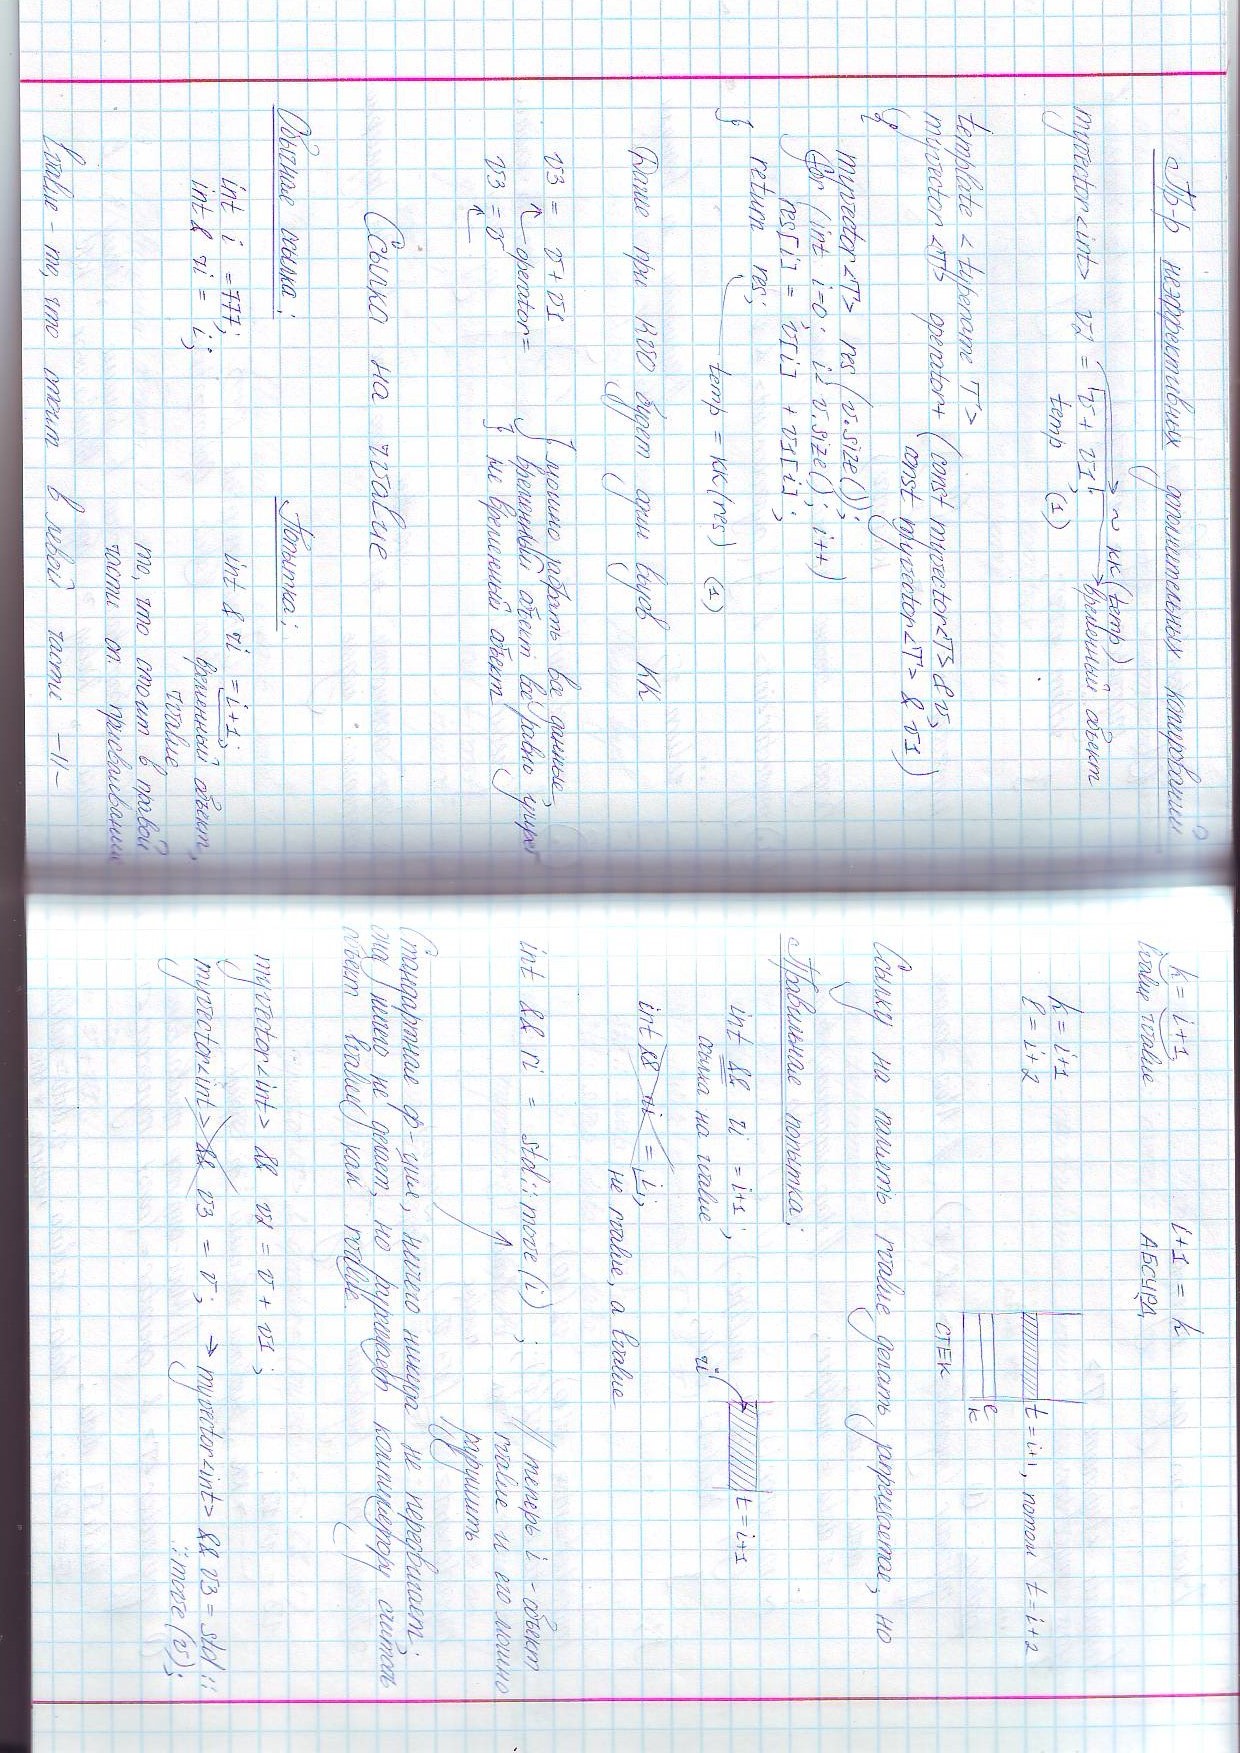 Пр-р неэффективных дополнительных копирований
myvector<int> v2 = v + v1; ~ KK(temp)
temp (1) временный объект
template <typename T>
myvector<T> operator+ (const myvector<T> & v,
const myvector<T> & v1)
{
myvector<T> res(v.size());
for (int i=0; i<v.size(); i++)
res[i] = v[i] + v1[i];
return res;
temp = KK(res) (1)
}
Даже при RVO будет один вызов KK
v3 = v + v1 } можно забрать все данные,
operator= временный объект всё равно умрёт
v3 = v } не временный объект
Ссылка на rvalue
Обычные ссылки:
int i = 777;
int & ri = i;
Попытка:
int & ri = i+1;
временный объект,
rvalue
то, что стоит в правой
части оп. присваивания
lvalue - то, что стоит в левой части -11-
k = i+1
lvalue rvalue
i+1 = k
АБСУРД
k = i+1
l = i+2
t = i+1, потом t = i+2
l
k
СТЕК
Ссылку на память rvalue делать запрещается, но
Правильные попытка:
int && ri = i+1;
ссылка на rvalue
ri
t = i+1
int && ri = i;
не rvalue, а lvalue
int && ri = std::move(i); // теперь i - объект
rvalue и его можно
// разрушить
Стандартная ф-ция, ничего никуда не передвигает;
она ничего не делает, но разрешает компилятору считать
объект lvalue как rvalue.
myvector<int> && v2 = v + v1;
myvector<int> && v3 = v; → myvector<int> && v3 = std::
::move(v);